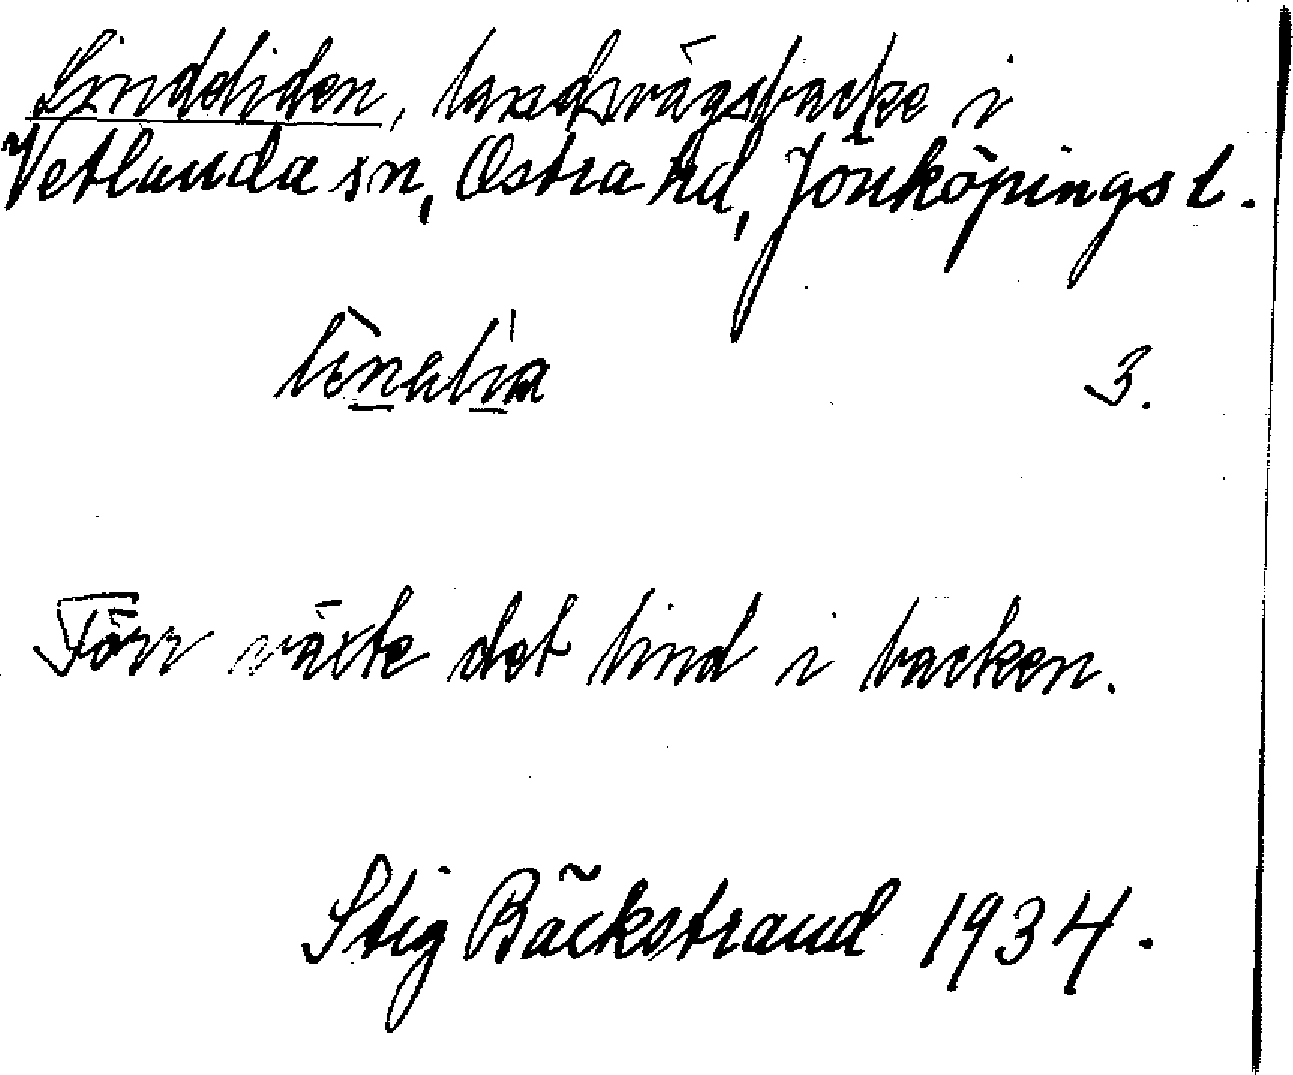 Lindeliden, landsvägsbacke i
Vetlanda sn, Östra hd, Jönköpings l.
3.
Förr växte det lind i backen.
Stig Bäckstrand 1934.